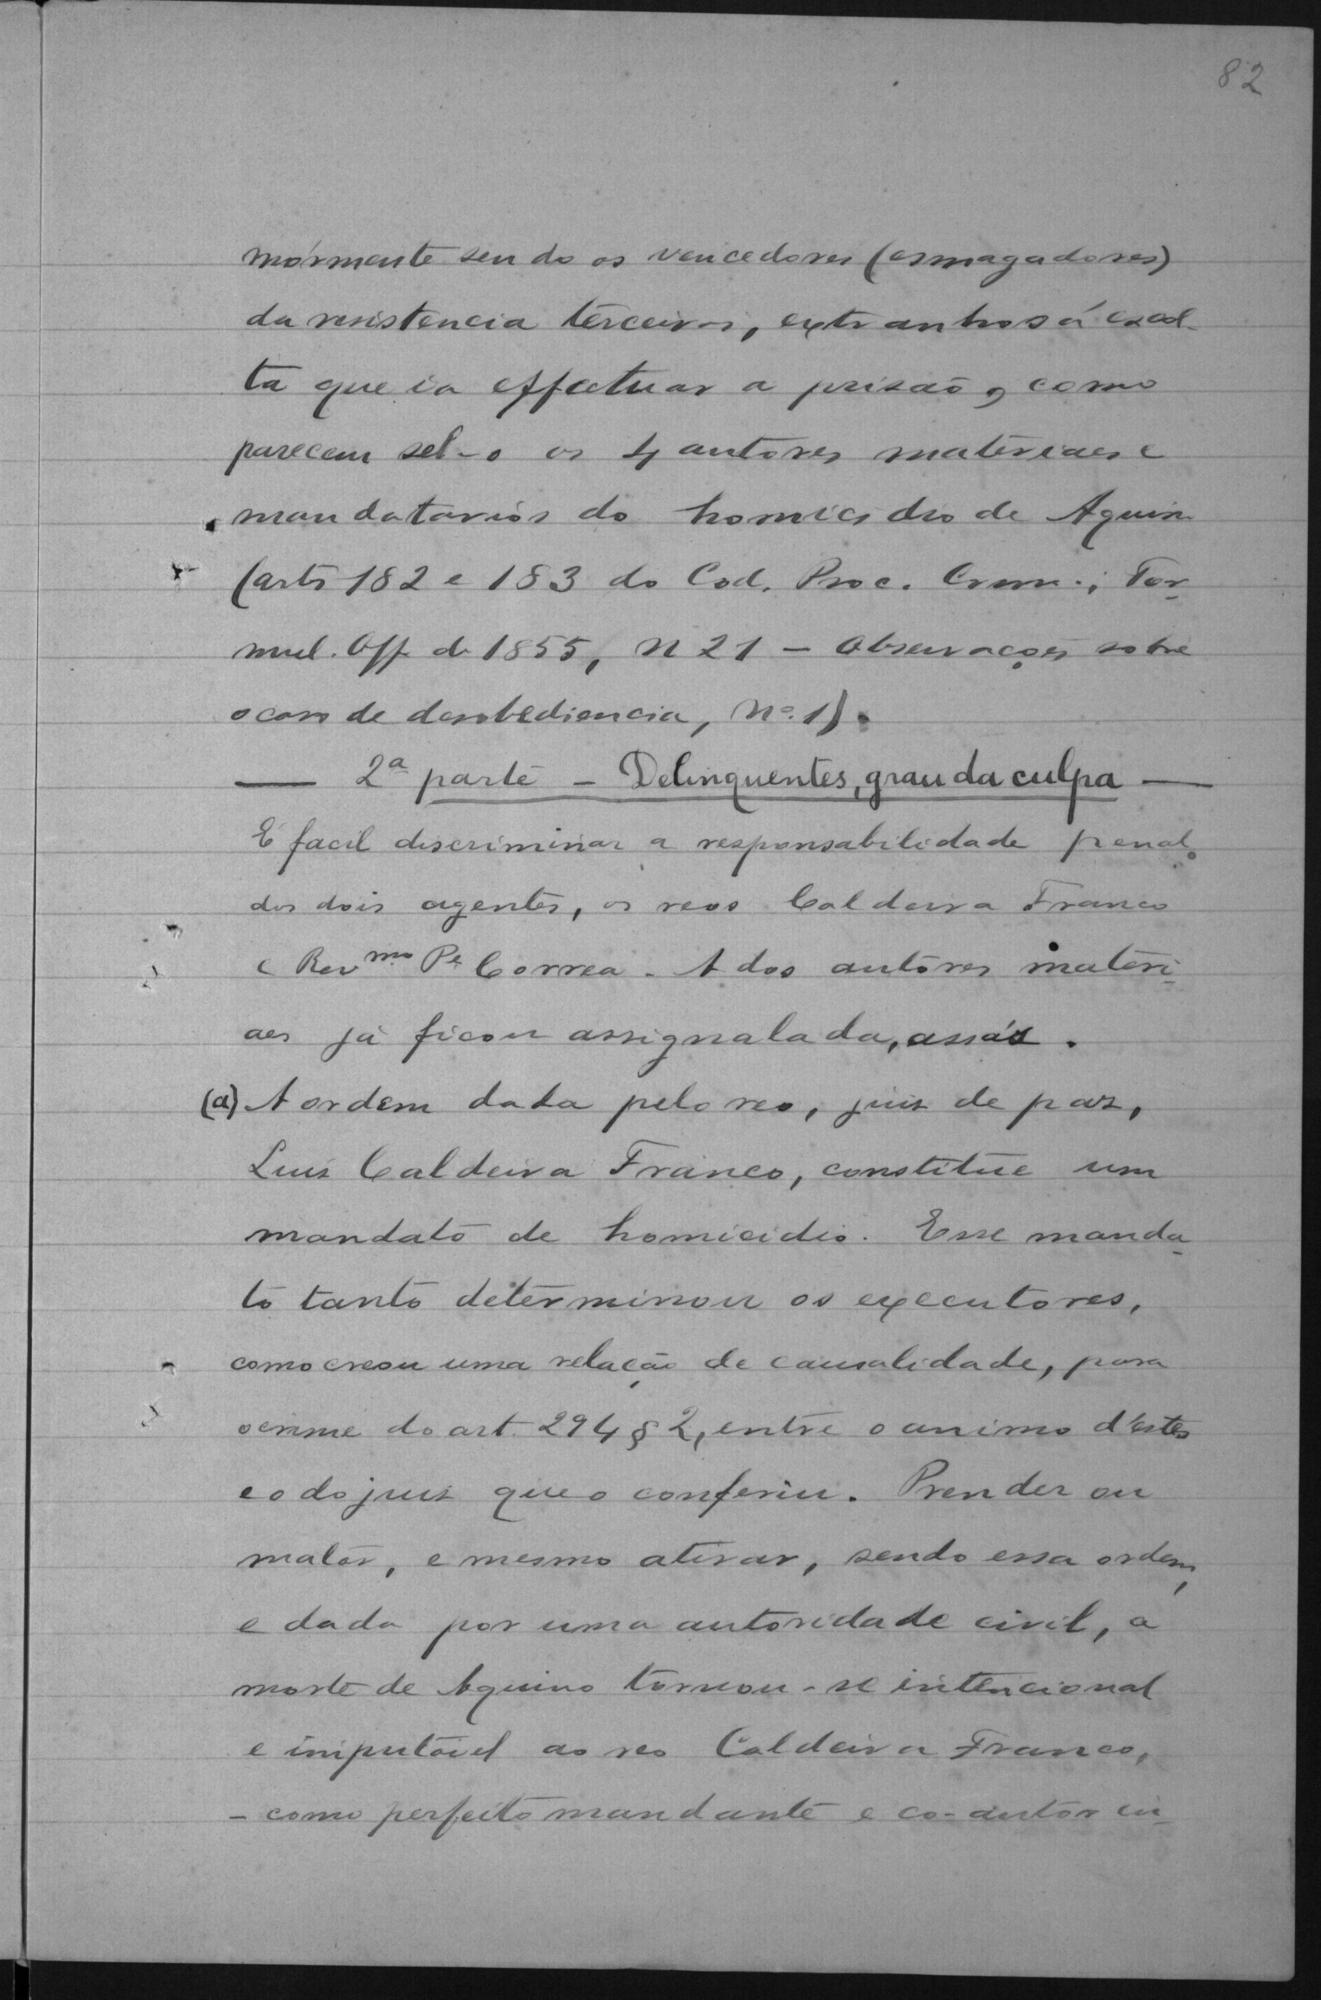 82
mórmente sendo os vencedores (esmagadores)
da resistencia terceiros, extranhos á escol-
ta que ia effectuar a prisão, como
parecem sel-o os 4 autores materiaes e
mandatarios do homicidio de Aquino
(arts 182 e 183 do Cod. Proc. Crim.; For-
mul. Off. de 1855, N 21 - Observações sobre
o caso de desobediencia, Nº. 1).
— 2ª parte - Delinquentes, grau da culpa —
E' facil discriminar a responsabilidade penal
dos dois agentes, os reos Caldeira Franco
e Revmo Pe Correa. A dos autores materi-
aes já ficou assignalada, assás.
(a) A ordem dada pelo reo, juiz de paz,
Luis Caldeira Franco, constitúe um
mandato de homicidio. Esse manda-
to tanto determinou os executores,
como creou uma relação de causalidade, para
o crime do art. 294 § 2, entre o animo d'estes
e o do juiz que o conferiu. Prender ou
matar, e mesmo atirar, sendo essa ordem,
e dada por uma autoridade civil, a
morte de Aquino tornou-se intencional
e imputavel ao reo Caldeira Franco,
- como perfeito mandante e co-autor in-